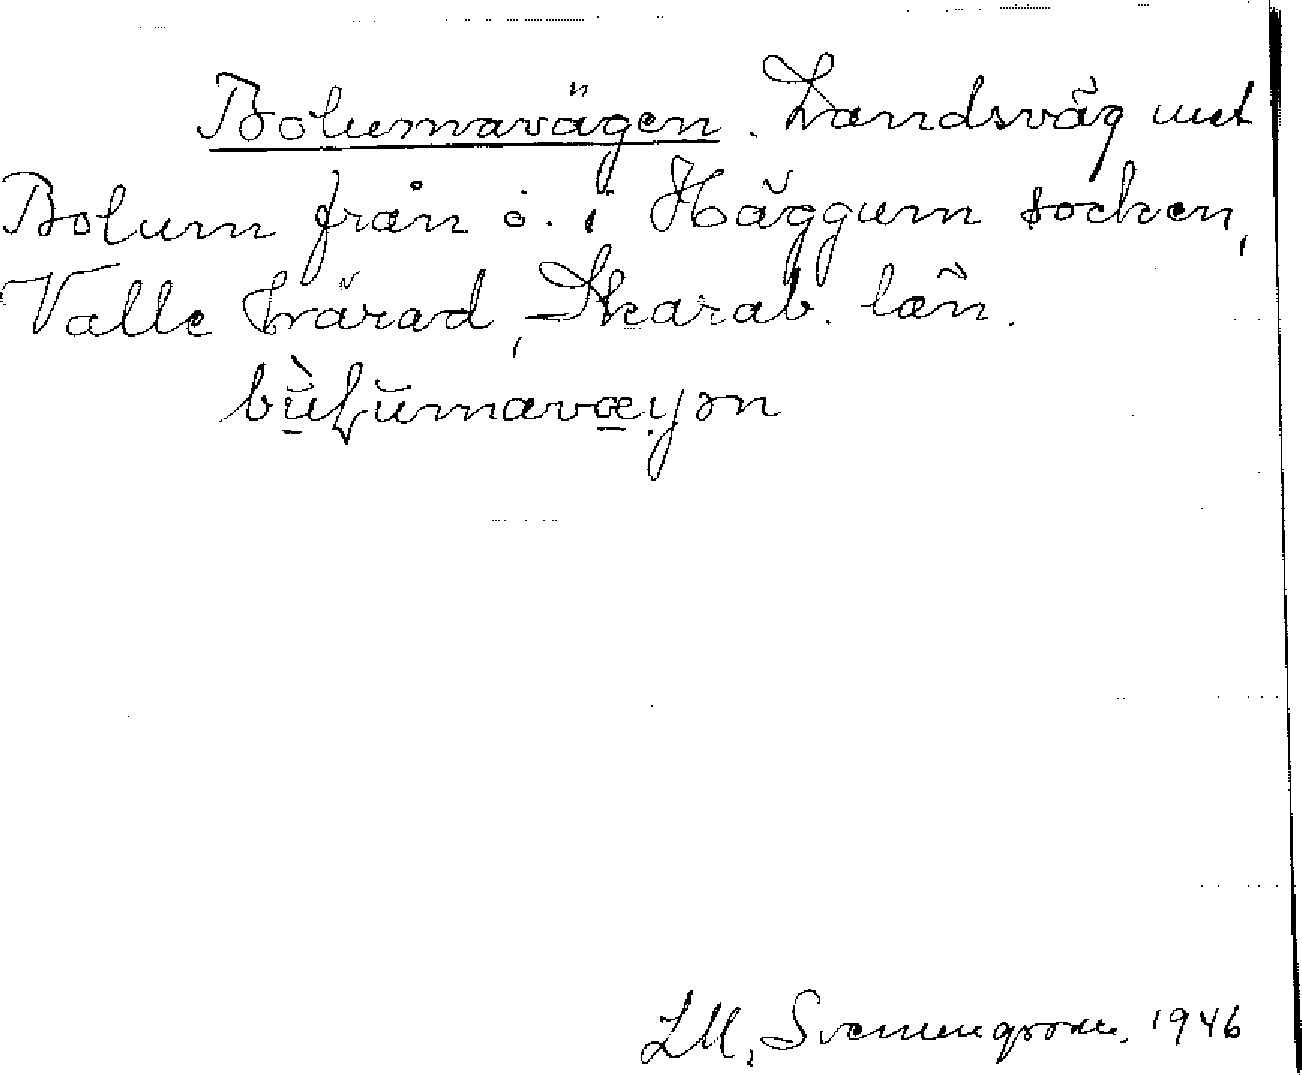 Bolumavägen. Landsväg mot
Bolum från ö. i Häggum socken,
Valle härad, Skarab. län.
bùḷumavæɣən
Svenungsson, 1946